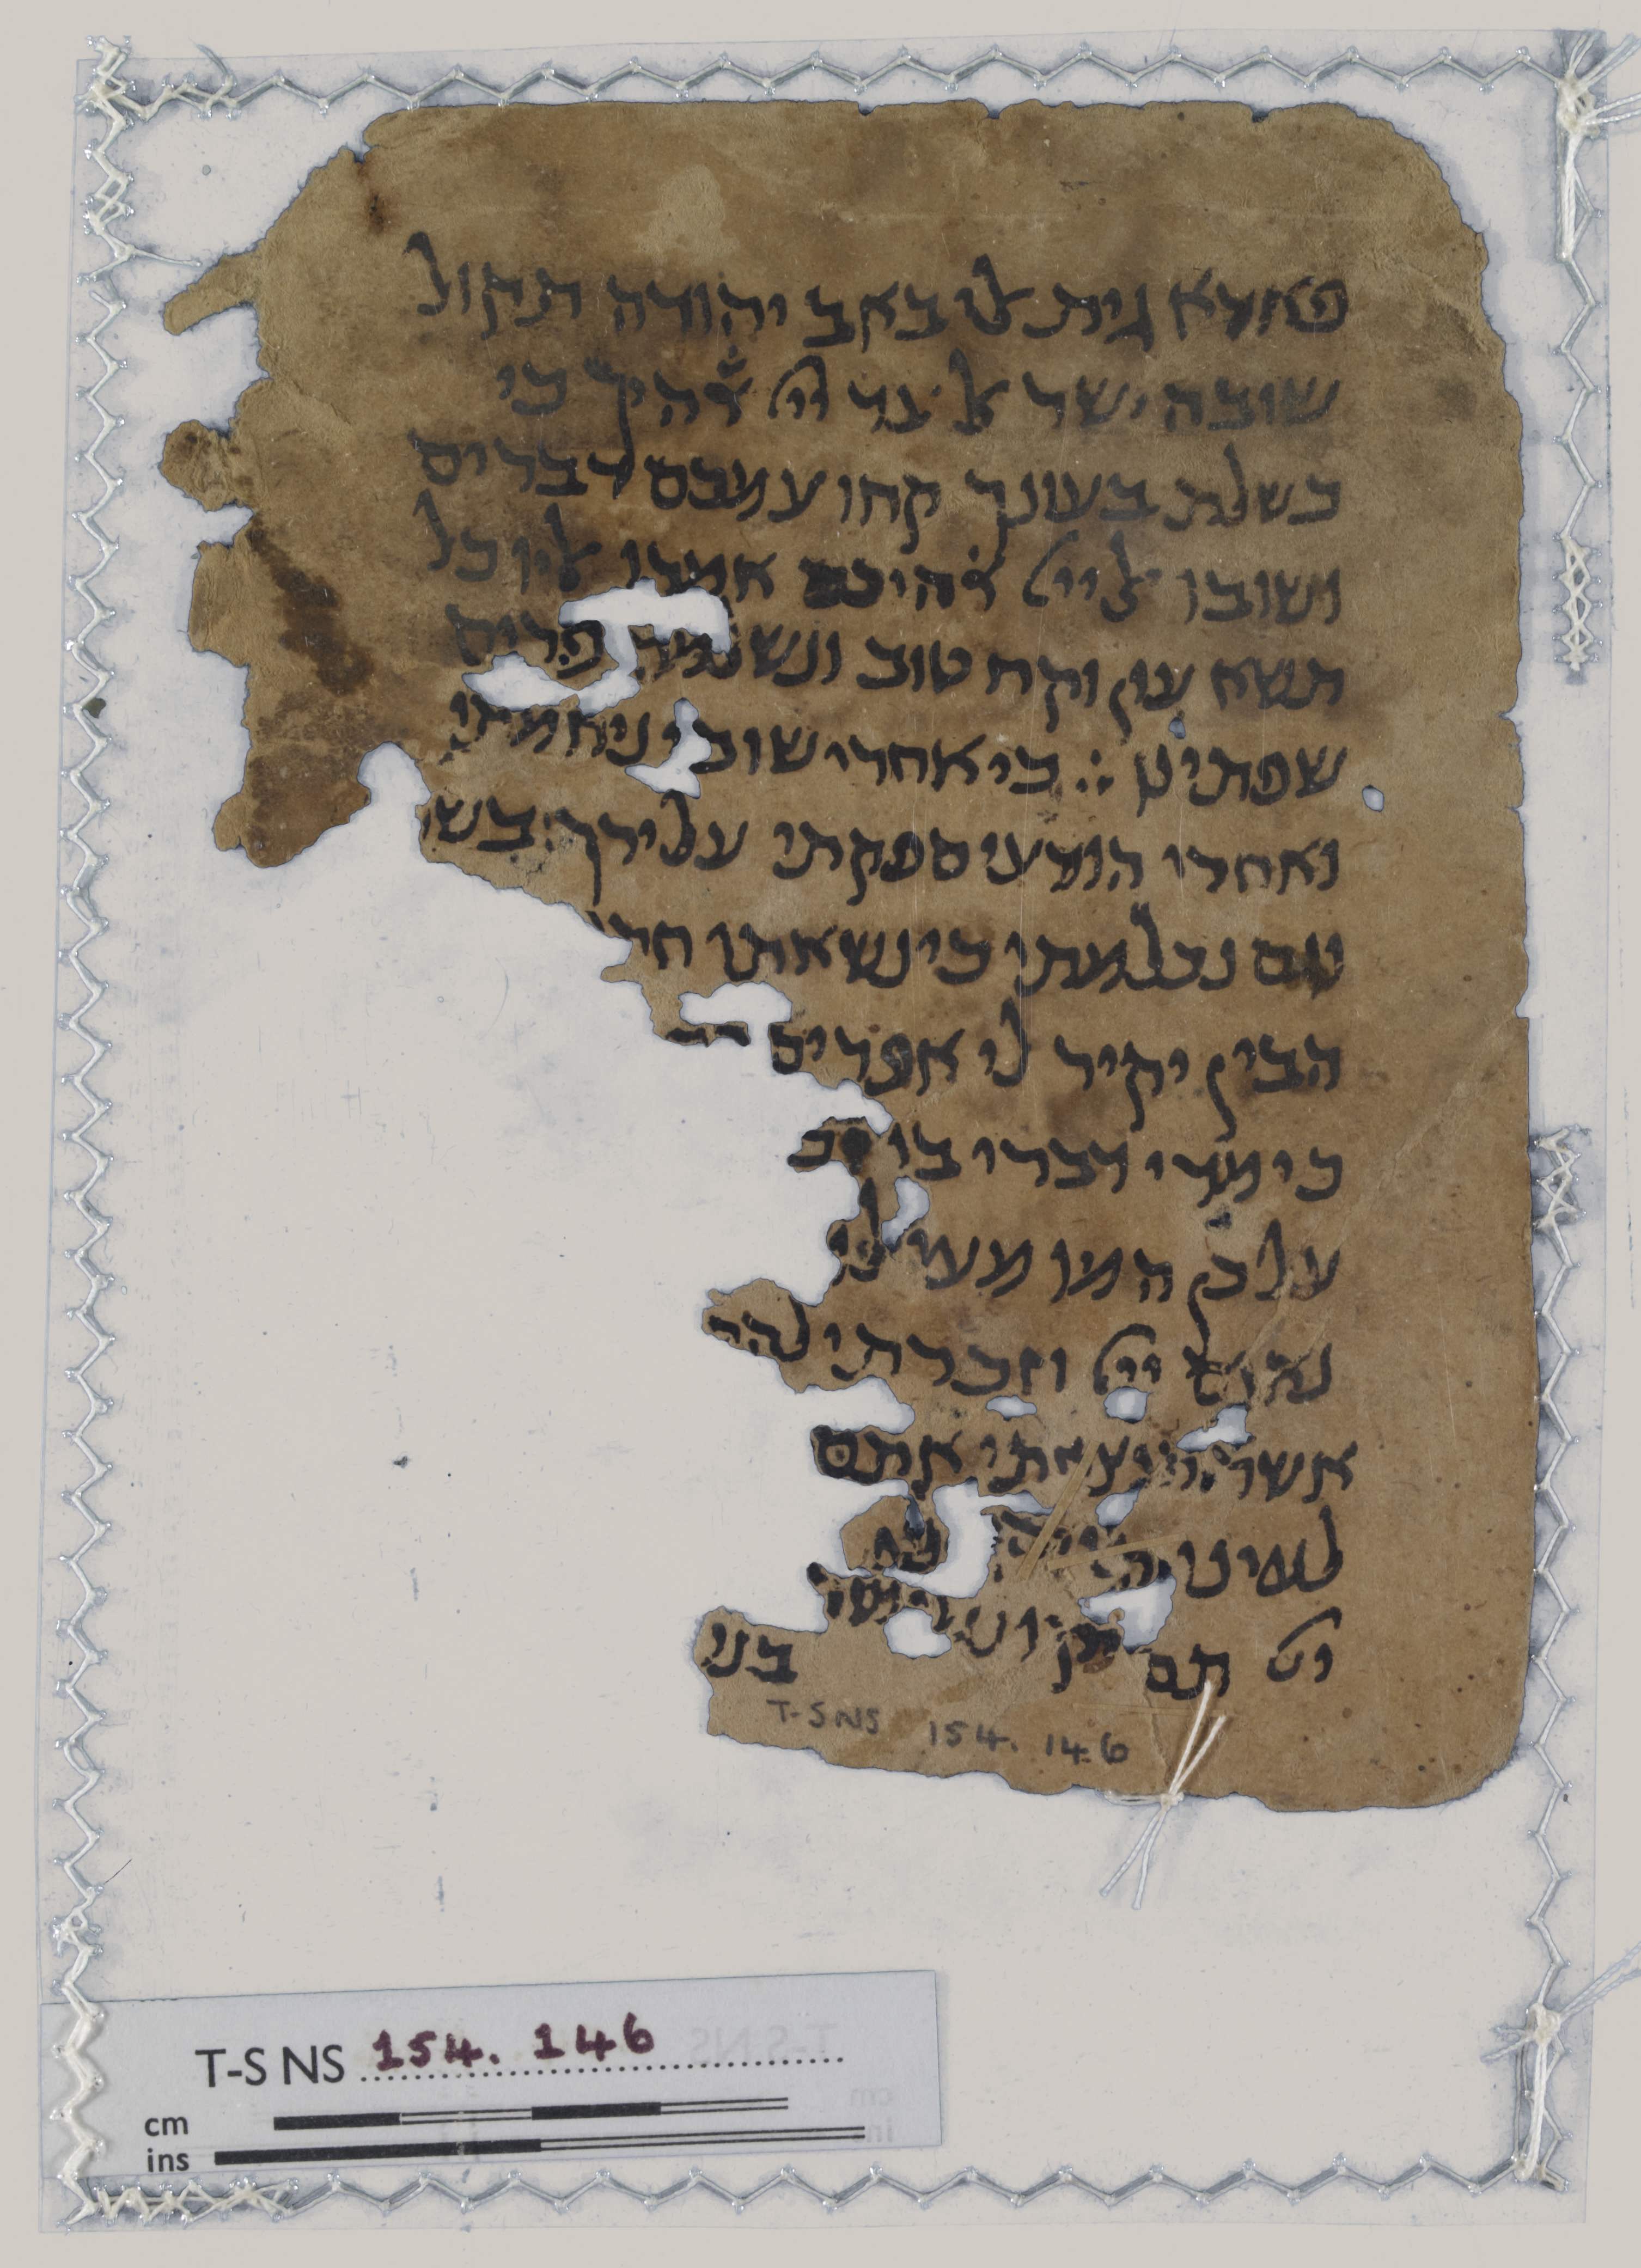 פאדא גית אלי באב יהודה תקול
שובה ישראל עד ייי אלהיך כי
כשלת בעונך קחו עמכם דברים
ושובו אל ייי אלהיכם אמרו אליו כל
תשא עון וקח טוב ונשלמה פרים
שפתינו : כי אחרי שובי ניחמתי
ואחרי הודעי ספקתי על ירך בשתי
גם נכלמתי כי נשאתי חר
הבין יקיר לי אפרים
כי מדי דברי בו זכ
על כן המו מעי לו
נאם ייי וזכרתי להם
אשר הוצאתי אתם
לעיני
ייי תם בני
T-S NS 154. 146
T-S NS 154. 146
cm
ins